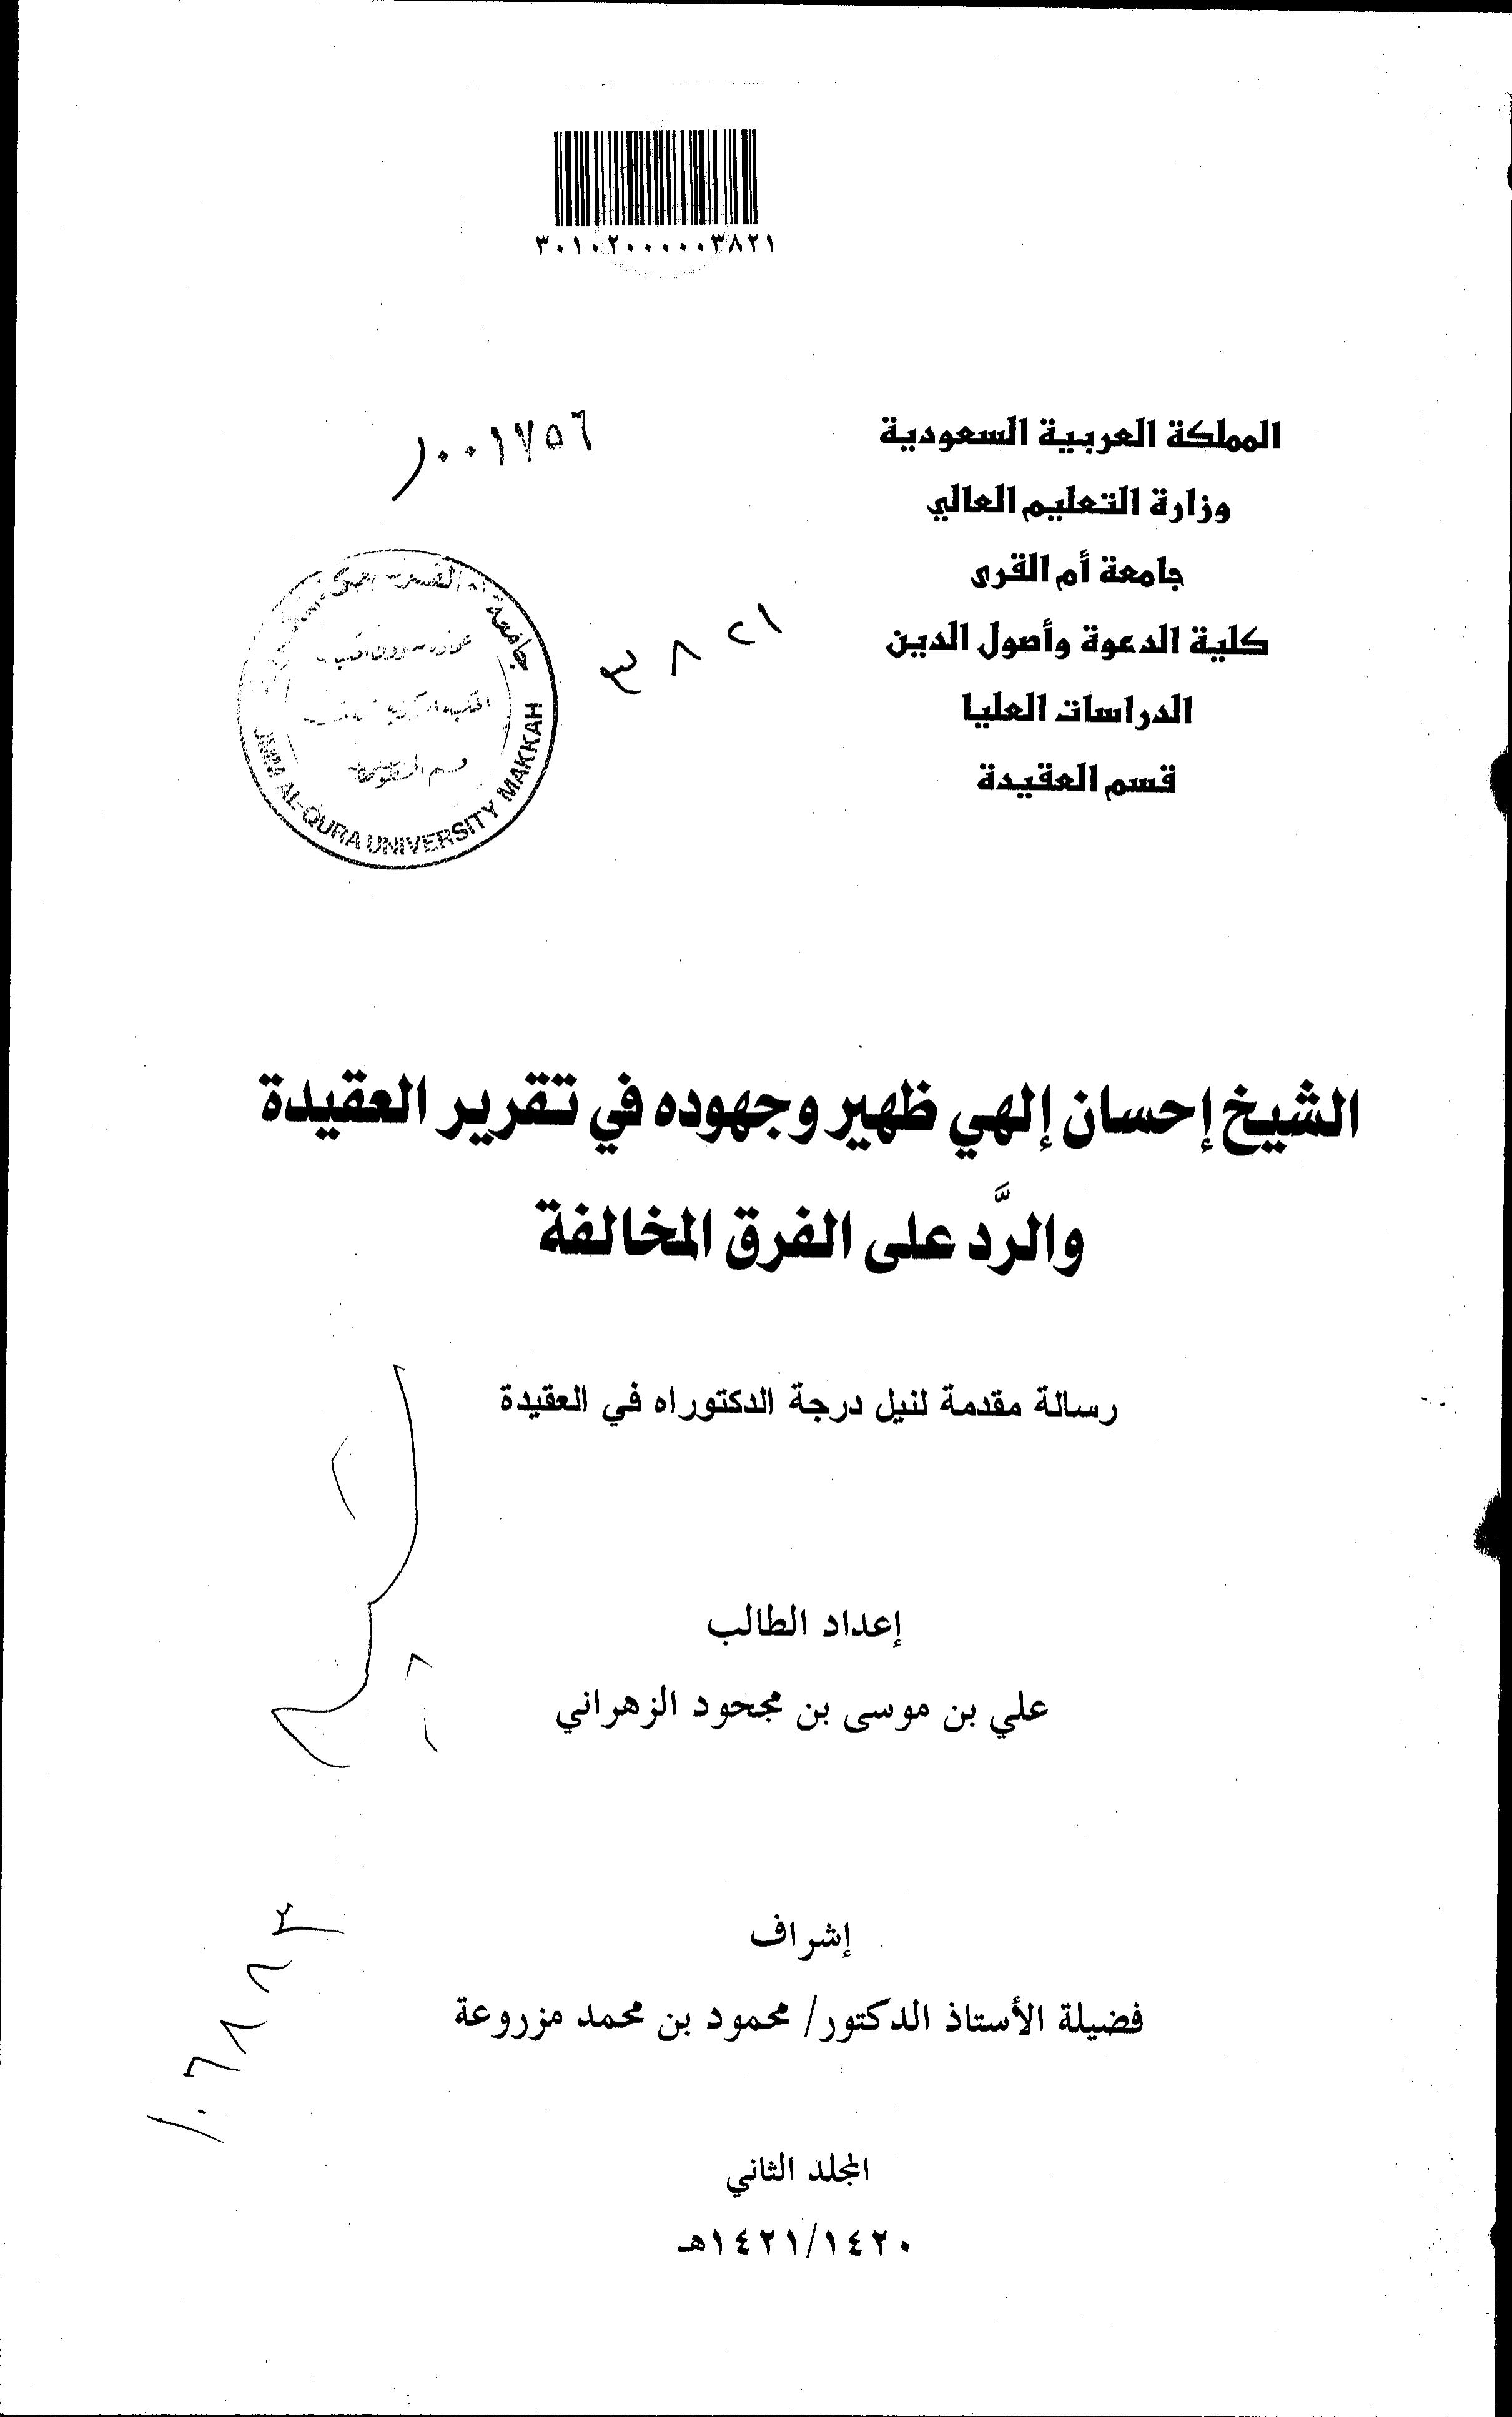 ٣٠١٠٢٠٠٠٠٠٣٨٢١
المملكة العربية السعودية
وزارة التعليم العالي
جامعة أم القرى
كلية الدعوة وأصول الدين
الدراسات العليا
قسم العقيدة
١٠٠١٧٥٦
٣٨٢١
جامعة أم
UMM AL-QURA UNIVERSITY MAKKAH
الشيخ إحسان إلهي ظهير وجهوده في تقرير العقيدة
والرَّد على الفرق المخالفة
رسالة مقدمة لنيل درجة الدكتوراه في العقيدة
إعداد الطالب
علي بن موسى بن مجحود الزهراني
إشراف
فضيلة الأستاذ الدكتور/ محمود بن محمد مزروعة
المجلد الثاني
١٤٢١/١٤٢٠هـ